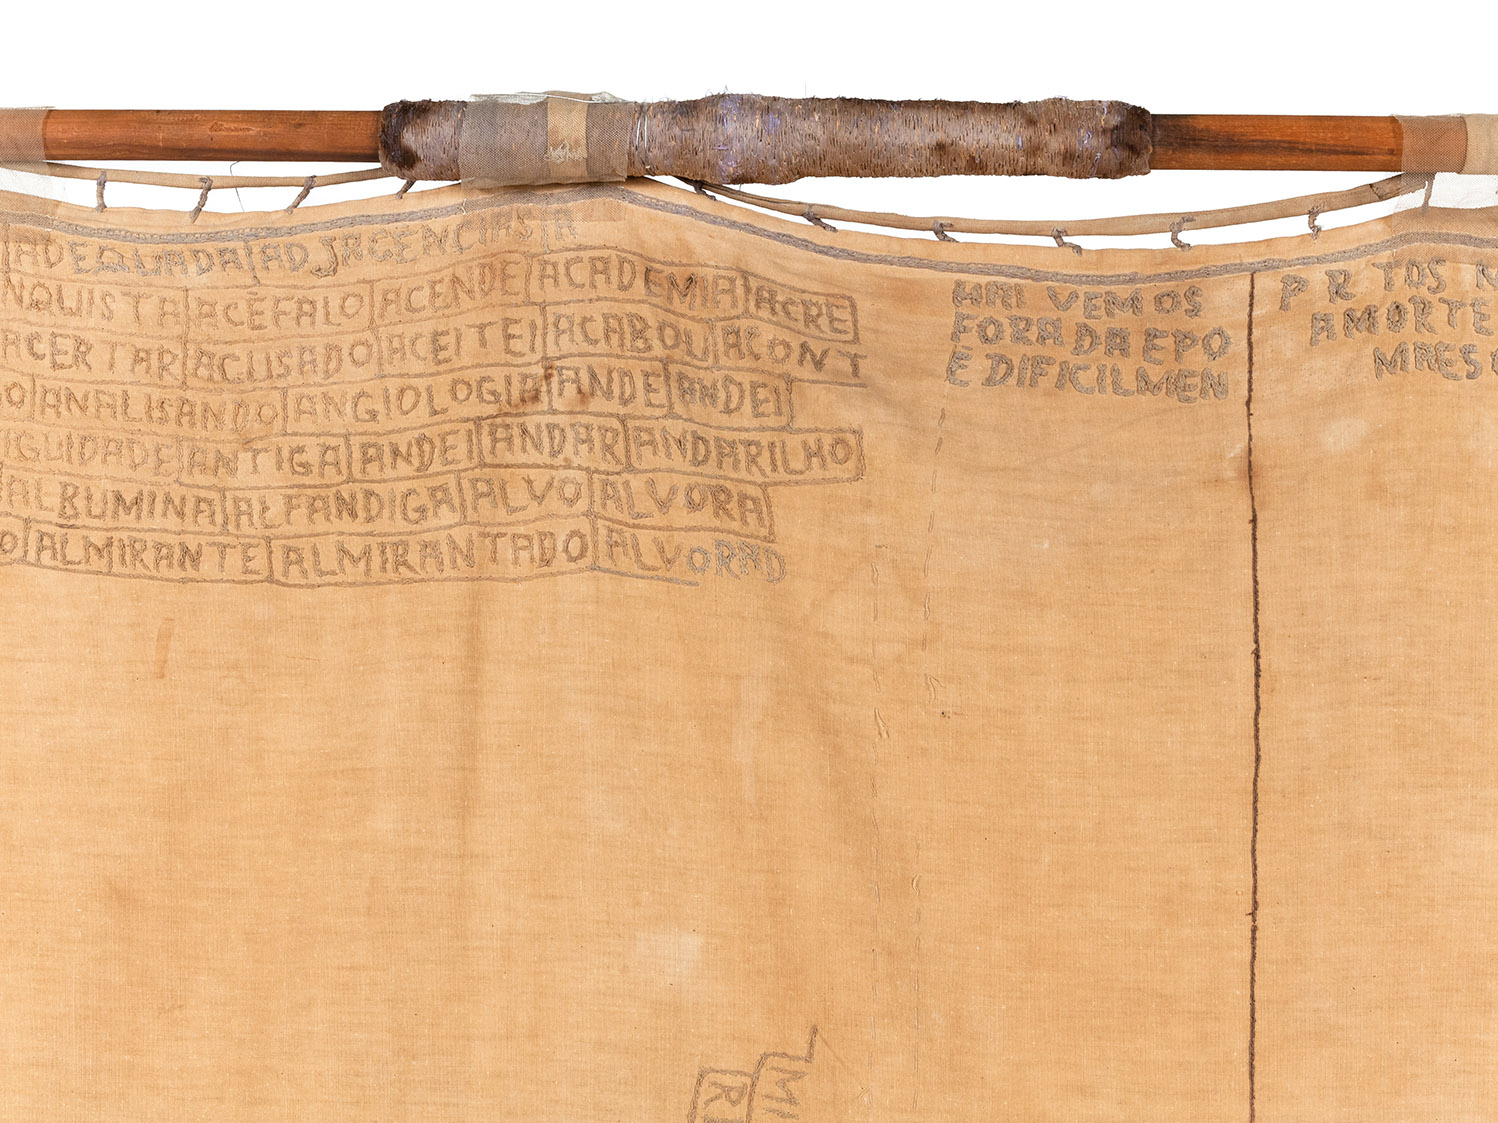 ADEQUADA AD JAGENCIASTA
NQUISTA ACÉFALO ACENDE ACADEMIA ACRE
ACERTAR ACUSADO ACEITEI ACABOU ACONT
GO ANALISANDO ANGIOLOGIA ANDE ANDEI
IGUIDADE ANTIGA ANDEI ANDAR ANDARILHO
ALBUMINA ALFANDIGA ALVO ALVORA
O ALMIRANTE ALMIRANTADO ALVORAD
HAI VEMOS
FORA DA EPO
E DIFICILMEN
P R TOS N
AMORTE
MAES
MI
R